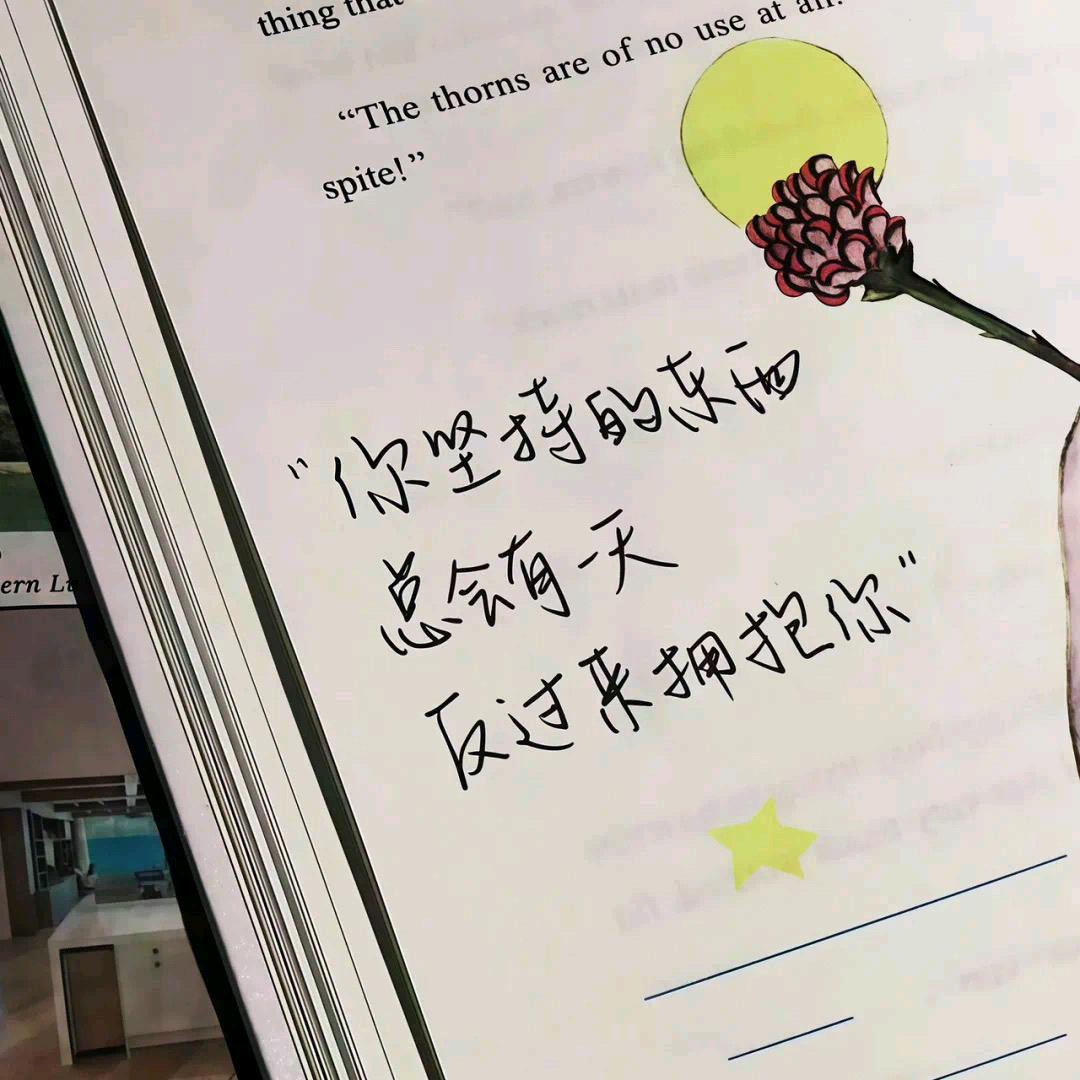 thing that
"The thorns are of no use at all.
spite!"
"你坚持的东西
总会有一天
反过来拥抱你"
ern